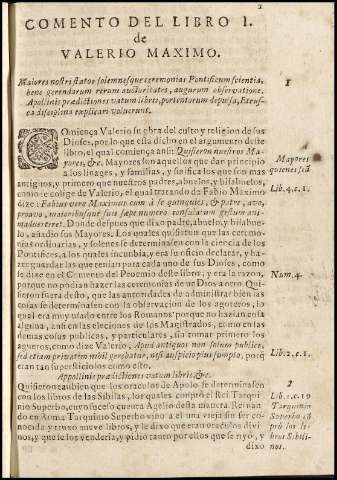 2
COMENTO DEL LIBRO I.
de
VALERIO MAXIMO.
Maiores nostri statas solemnesque ceremonias Pontificum scientia,
bene gerendarum rerum auctoritates, augurum observatione,
Apollinis prædictiones vatum libris, portentorum depulsa, Etrus-
ca disciplina explicari voluerunt.
1
COmiença Valerio su obra del culto y religion de sus
Dioses, por lo que esta dicho en el argumento deste
libro, el qual comiença assi: Quisieron nuestros Ma-
yores, &c. Mayores son aquellos que dan principio
a los linages, y familias, y significa los que son mas
antiguos, y primero que nuestros padres, abuelos, y bisabuelos,
como se colige de Valerio, el qual tratando de Fabio Maximo
dize: Fabius vero Maximus cum à se quinquies, & patre, avo,
proavo, maioribusque suis sæpe numero consulatum gestum ani-
madverteret. Donde despues que dixo padre, abuelo, y bisabue-
lo, añadio sus Mayores. Los quales quisieron que las ceremo-
nias ordinarias, y solenes se determinassen con la ciencia de los
Pontifices, a los quales incumbia, y era su oficio declarar, y ha-
zer guardar las que tenian para cada uno de sus Dioses, como
se dize en el Comento del Proemio deste libro, y era la razon,
porque no podian hazer las ceremonias de un Dios a otro. Qui-
sieron fuera desto, que las autoridades de administrar bien las
cosas se determinassen con la observacion de los agoreros, lo
qual era muy usado entre los Romanos porque no hazian cosa
alguna, assi en las eleciones de los Magistrados, como en las
demas cosas publicas, y particulares, sin tomar primero los
agueros, como dize Valerio, Apud antiquos non solum publice,
sed etiam privatim nihil gerebatur, nisi auspicio prius sumpto, porq
eran tan supersticiosos como esto.
Mayores
quienes sea
Lib. 4. c. 1.
Num. 4.
Lib. 2. c. 1.
Appollinis prædictiones vatum libris, &c.
Quisieron tambien que los oraculos de Apolo se determinassen
con los libros de las Sibilas, los quales compró el Rei Tarqui
no Superbo, cuyo suceso cuenta Agelio desta manera. Reinan-
do en Roma Tarquino Superbo vino a el una vieja sin ser co-
nocida y truxo nueve libros, y le dixo que eran oraculos divi-
nos, y que se los venderia, y pidio tanto por ellos que se ryó, y
dixo
2
Lib. 1. c. 19
Tarquino
Soperbo cõ
pró los li-
bros Sibili-
nos.